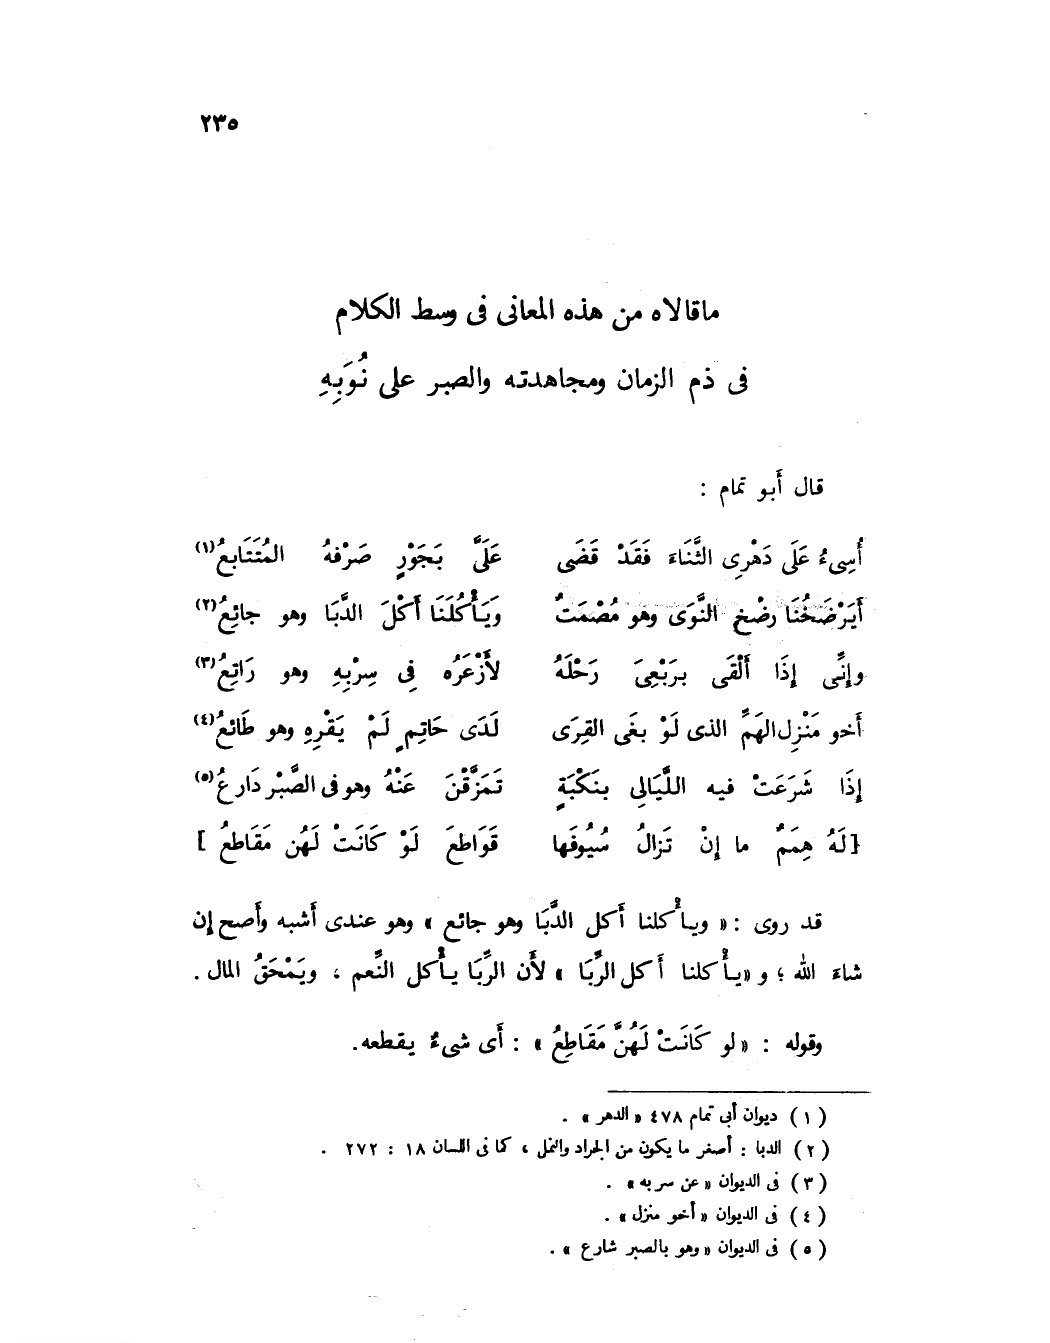 ٢٣٥
ماقالاه من هذه المعانى فى وسط الكلام
فى ذم الزمان ومجاهدته والصبر على نُوَبِهِ
قال أَبو تمام :
أُسِىءُ عَلَى دَهْرِى الثَّنَاءَ فَقَدْ قَضَى عَلَىَّ بَجَوْرٍ صَرْفهُ المُتَتَابعُ(١)
أَيَرْضَخُنَا رضْخ النَّوَى وهو مُصْمَتٌ وَيَأْكُلُنَا أَكْلَ الدَّبَا وهو جائِعُ(٢)
وإِنِّى إِذَا أَلْقَى برَبْعِىَ رَحْلَهُ لأَزْعَرُه فِى سِرْبِهِ وهو رَاتِعُ(٣)
أخو مَنْزِل الهَمِّ الذى لَوْ بغَى القِرَى لَدَى حَاتِمٍ لَمْ يَقْرِهِ وهو طَائعُ(٤)
إِذَا شَرَعَتْ فيه اللَّيَالِى بنَكْبَةٍ تَمَزَّقْنَ عَنْهُ وهو فى الصَّبْر دَارعُ(٥)
[ لَهُ هِمَمٌ ما إِنْ تَزالُ سُيُوفُها قَوَاطعَ لَوْ كَانَتْ لَهُن مَقَاطعُ ]
قد روى : « ويأْكلنا أَكل الدَّبَا وهو جائع » وهو عندى أَشبه وأَصح إِن
شاءَ الله ؛ و «يأْكلنا أَكل الرِّبَا » لأَن الرِّبَا يأْكل النَّعم ، ويَمْحَقُ المال .
وقوله : « لو كَانَتْ لَهُنَّ مَقَاطِعُ » : أَى شىءٌ يقطعه.
( ١ ) ديوان أبى تمام ٤٧٨ « الدهر » .
( ٢ ) الدبا : أصغر ما يكون من الجراد والنمل ، كما فى اللسان ١٨ : ٢٧٢ .
( ٣ ) فى الديوان « عن سربه » .
( ٤ ) فى الديوان « أخو منزل » .
( ٥ ) فى الديوان « وهو بالصبر شارع » .